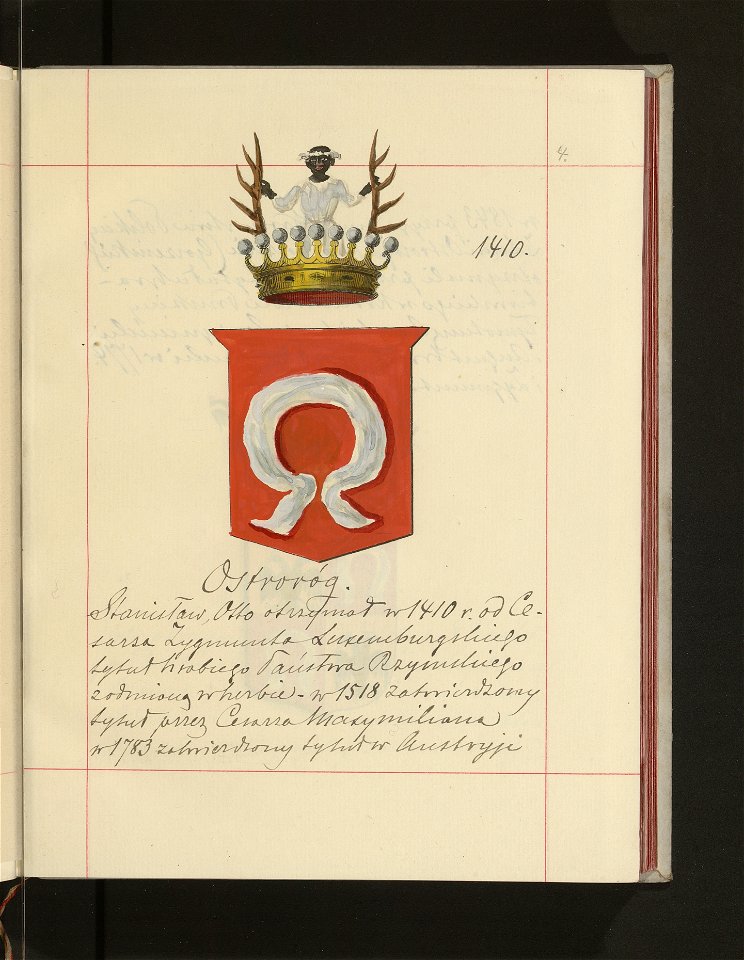 4.
1410.
Ostroróg.
Stanisław, Otto otrzymał w 1410 r. od Ce-
sarza Zygmunta Luxemburgskiego
tytuł hrabiego Państwa Rzymskiego
z odmianą w herbie - w 1518 zatwierdzony
tytuł przez Cesarza Maxymiliana
w 1783 zatwierdzony tytuł w Austryji